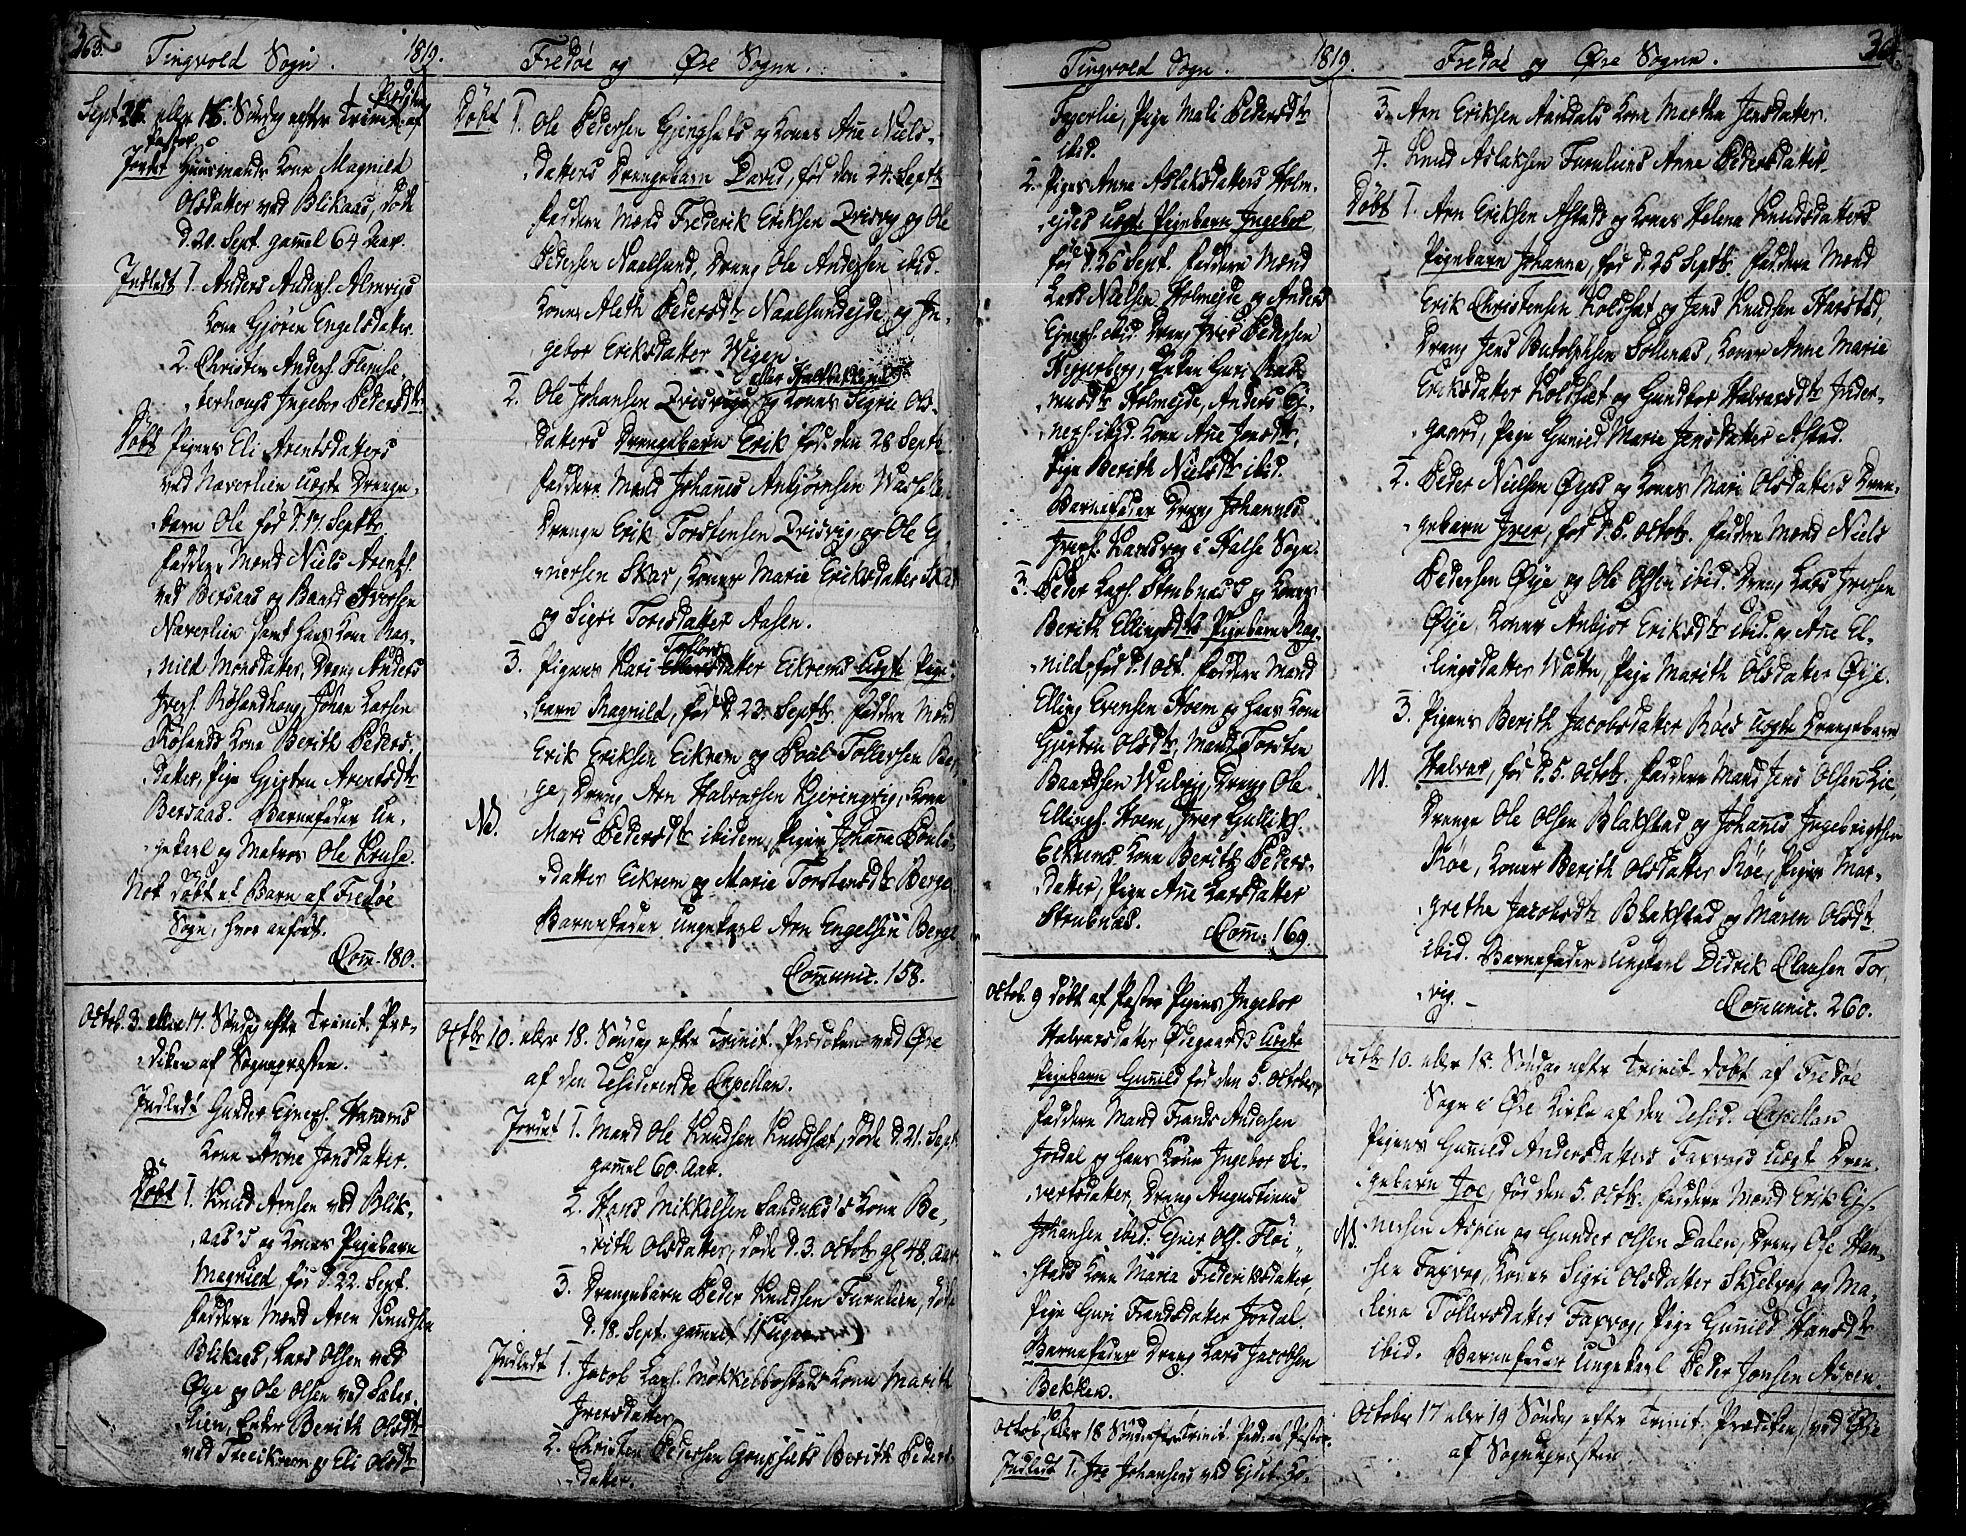 363. Tingvold Sogn. 1819. Fredøe og Øre Sogne.
Sept 26. eller 16. Søndag efter Trinit. Prædiken af
Pastor
Jordet Huusmands Kone Magnild
Olsdatter ved Blikaas, døde
d. 20. Sept. gamel 64 Aar.
Indledt 1. Anders Anders. Almvigs
Kone Gjøren Engelsdatter.
2. Christen Anders. Flemse-
terhougs Ingebor Pedersdtr
Døbt Pigens Eli Arentsdatters
ved Naverlien Uægte Drenge-
barn Ole fød d. 17. Septbr
Faddere Mænd Niels Arents.
ved Bersaas og Baard Iversen
Næverlien samt hans Kone Mag-
nild Monsdatter, Dreng Anders
Ivers. Røsandhoug, Johan Larsen
Røsands Kone Berith Peders-
datter, Pige Gjertru Arentsdtr
Bersaas. Barnefader Un-
gekarl og Matros Ole Kruse.
Nok døbt et Barn af Fredøe
Sogn, hvor anført.
Com. 180.
Octob. 3. eller 17. Søndag efter Trinit. Præ-
diken af Sognepræsten.
Indledt Gunder Einers. Hanæms
Kone Anne Jonsdatter.
Døbt 1. Knud Arnsen ved Blik-
aas's og Kones Pigebarn
Magnild fød d. 22. Sept.
Faddere Mænd Aren Knudsen
Blikaas, Lars Olsen ved
Øye og Ole Olsen ved Saler-
lien, Enke Berith Olsdtr
ved Freeikrem og Eli Olsdtr
Døbt 1. Ole Pedersen Gjengsets og Kones Ane Niels-
datters Drengebarn David, fød den 24. Septbr
Faddere Mænd Frederik Eriksen Qvisvig og Ole
Pedersen Naalsund, Dreng Ole Andersen ibid.
Koner Aleth Pedersdtr Naalsundejde og In-
gebor Eriksdatter Wigen.
eller Halsbekken
2. Ole Johansen Qvisvigs og Kones Sigrie Ols-
datters Drengebarn Erik fød den 28 Septbr
Faddere Mænd Johanes Anbjørnsen
Drenge Erik Torstensen Qvisvig og Ole
mersen Skar, Koner Marie Eriksdatter Skar
og Sigri Toresdatter Aasen.
Tollers
3. Pigens Kari datter Eikrems Uægte Pige-
barn Magnild, fød d. 23. Septbr. Faddere Mænd
Erik Eriksen Eikrem og Poul Tollersen Ber-
ge, Dreng Arn Halvorsen Kjeringvig, Kone
NB. Mari Pedersdtr ibidem, Piger Johana Pouls-
datter Eikrem og Marie Torstensdtr Berge.
Barnefader Ungekarl Arn Engelsen Berge
Communic. 158.
Octbr 10. eller 18. Søndag efter Trinit. Prædiken ved Øre
af den Residerende Capellan.
Jordet 1. Mand Ole Knudsen Knudset, døde d. 21. Sept.
gamel 60. Aar.
2. Hans Mikkelsen Sandnæs's Kone Be-
rith Olsdatter, døde d. 3. Octobr gl 48. Aar
3. Drengebarn Peder Knudsen Furulien, døde
d. 18. Sept. gamel 11 Uger.
Indledt 1. Jacob Lars. Mokkelbostads Kone Marith
Iversdatter
2. Christen Pedersen Gaupsets Berith Peders-
datter.
Tingvold Sogn. 1819. Fredøe og Øre Sogne. 364.
Fagerlie, Pige Mali Pedersdtr
ibid.
2. Pigens Anna Aslaksdatters Holm-
ejdes Uægte Pigebarn Ingebor
fød d. 26 Sept. Faddere Mænd
Lars Nielsen Holmejde og Anders
Einers. ibid. Dreng Iver Pedersen
Heggerberg, Enken Guri Ras-
musdtr Holmejde, Anders Ei-
ners. ibid. Kone Ane Jonsdtr,
Pige Berith Nielsdtr ibid.
Barnefader Dreng Johannes
Ivers. Kansvog i Halse Sogn.
3. Peder Lars. Strubnæs's og Kones
Berith Ellingsdtrs Pigebarn Mag-
nild, fød d. 1 Oct. Faddere Mænd
Elling Evensen Hoem og hans Kone
Gjertru Olsdtr, Mænd Torsten
Baardsen Wulvig, Dreng Ole
Ellings. Hoem, Iver Gulliks.
Eikrems Kone Berith Peders-
datter, Pige Ane Larsdatter
Strubnæs. Com. 169.
Octob. 9 døbt af Pastor Pigens Ingebor
Halvorsdatter Ødegaards Uægte
Pigebarn Gunild fød den 5. October,
Faddere Mænd Frands Andersen
Jordal og hans Kone Ingebor Si-
vertsdatter, Dreng Augustinus
Johansen ibid. Einer Ols. Fløi-
stads Kone Maria Frederiksdatter,
Pige Guri Frandsdatter Jordal.
Barnefader Dreng Lars Jacobsen
Bekken.
Octob. 10 eller 18 Søndag efter Trinit. Præd. af Pastor.
Indledt 1. Joe Johansens ved Ejset Ko-
3. Arn Eriksen Aarsdals Kone Martha Jensdatter.
4. Knud Aslaksen Furuliens Anne Pedersdatter.
Døbt 1. Arn Eriksen Astads og Kones Helena Knudsdatters
Pigebarn Johanna, fød d. 25 Septbr. Faddere Mænd
Erik Christensen Koldset og Jens Knudsen Harstad,
Dreng Jens Butolphsen Sollenæs, Koner Anne Marie
Eriksdatter Koldset og Gundbor Halvorsdtr Inder-
gaard, Pige Gunild Marie Jensdatter Astad.
2. Peder Nielsen Øyes og Kones Mari Olsdatters Dren-
gebarn Iver, fød d. 5. Octob. Faddere Mænd Niels
Pedersen Øye og Ole Olsen ibid. Dreng Lars Iversen
Øye, Koner Anbjør Eriksdtr ibid. og Ane El-
lingsdatter Watten, Pige Marith Olsdatter Øye.
3. Pigens Berith Jacobsdatter Røes Uægte Drengebarn
N. Halvor, fød d. 5. Octob. Faddere Mænd Jens Olsen Lie
Drenge Ole Olsen Blakstad og Johanes Ingebrigtsen
Røe, Koner Berith Olsdatter Røe, Piger Mar-
grethe Jacobsdtr Blakstad og Maren Olsdtr
ibid. Barnefader Ungkarl Didrik Claasen Tor-
vig. Communic. 260.
Octbr 10. eller 18. Søndag efter Trinit. døbt af Fredøe
Sogn i Øre Kirke af den Resid. Capellan
Pigens Gunild Andersdatters Faxvaag Uægt Dren-
gebarn Joe, fød den 5. Octbr. Faddere Mænd Erik Ei-
N. nersen Aspen og Gunder Olsen Dalen, Dreng Ole Han-
sen Faxvog, Koner Sigri Olsdatter Skjelvog og Ma-
lena Tollersdatter Faxvog, Pige Gunild Hansdtr
ibid. Barnefader Ungekarl Peder Jonsen Aspen.
October 17 eller 19 Søndag efter Trinit. Prædiken ved Øre
af Sognepræsten